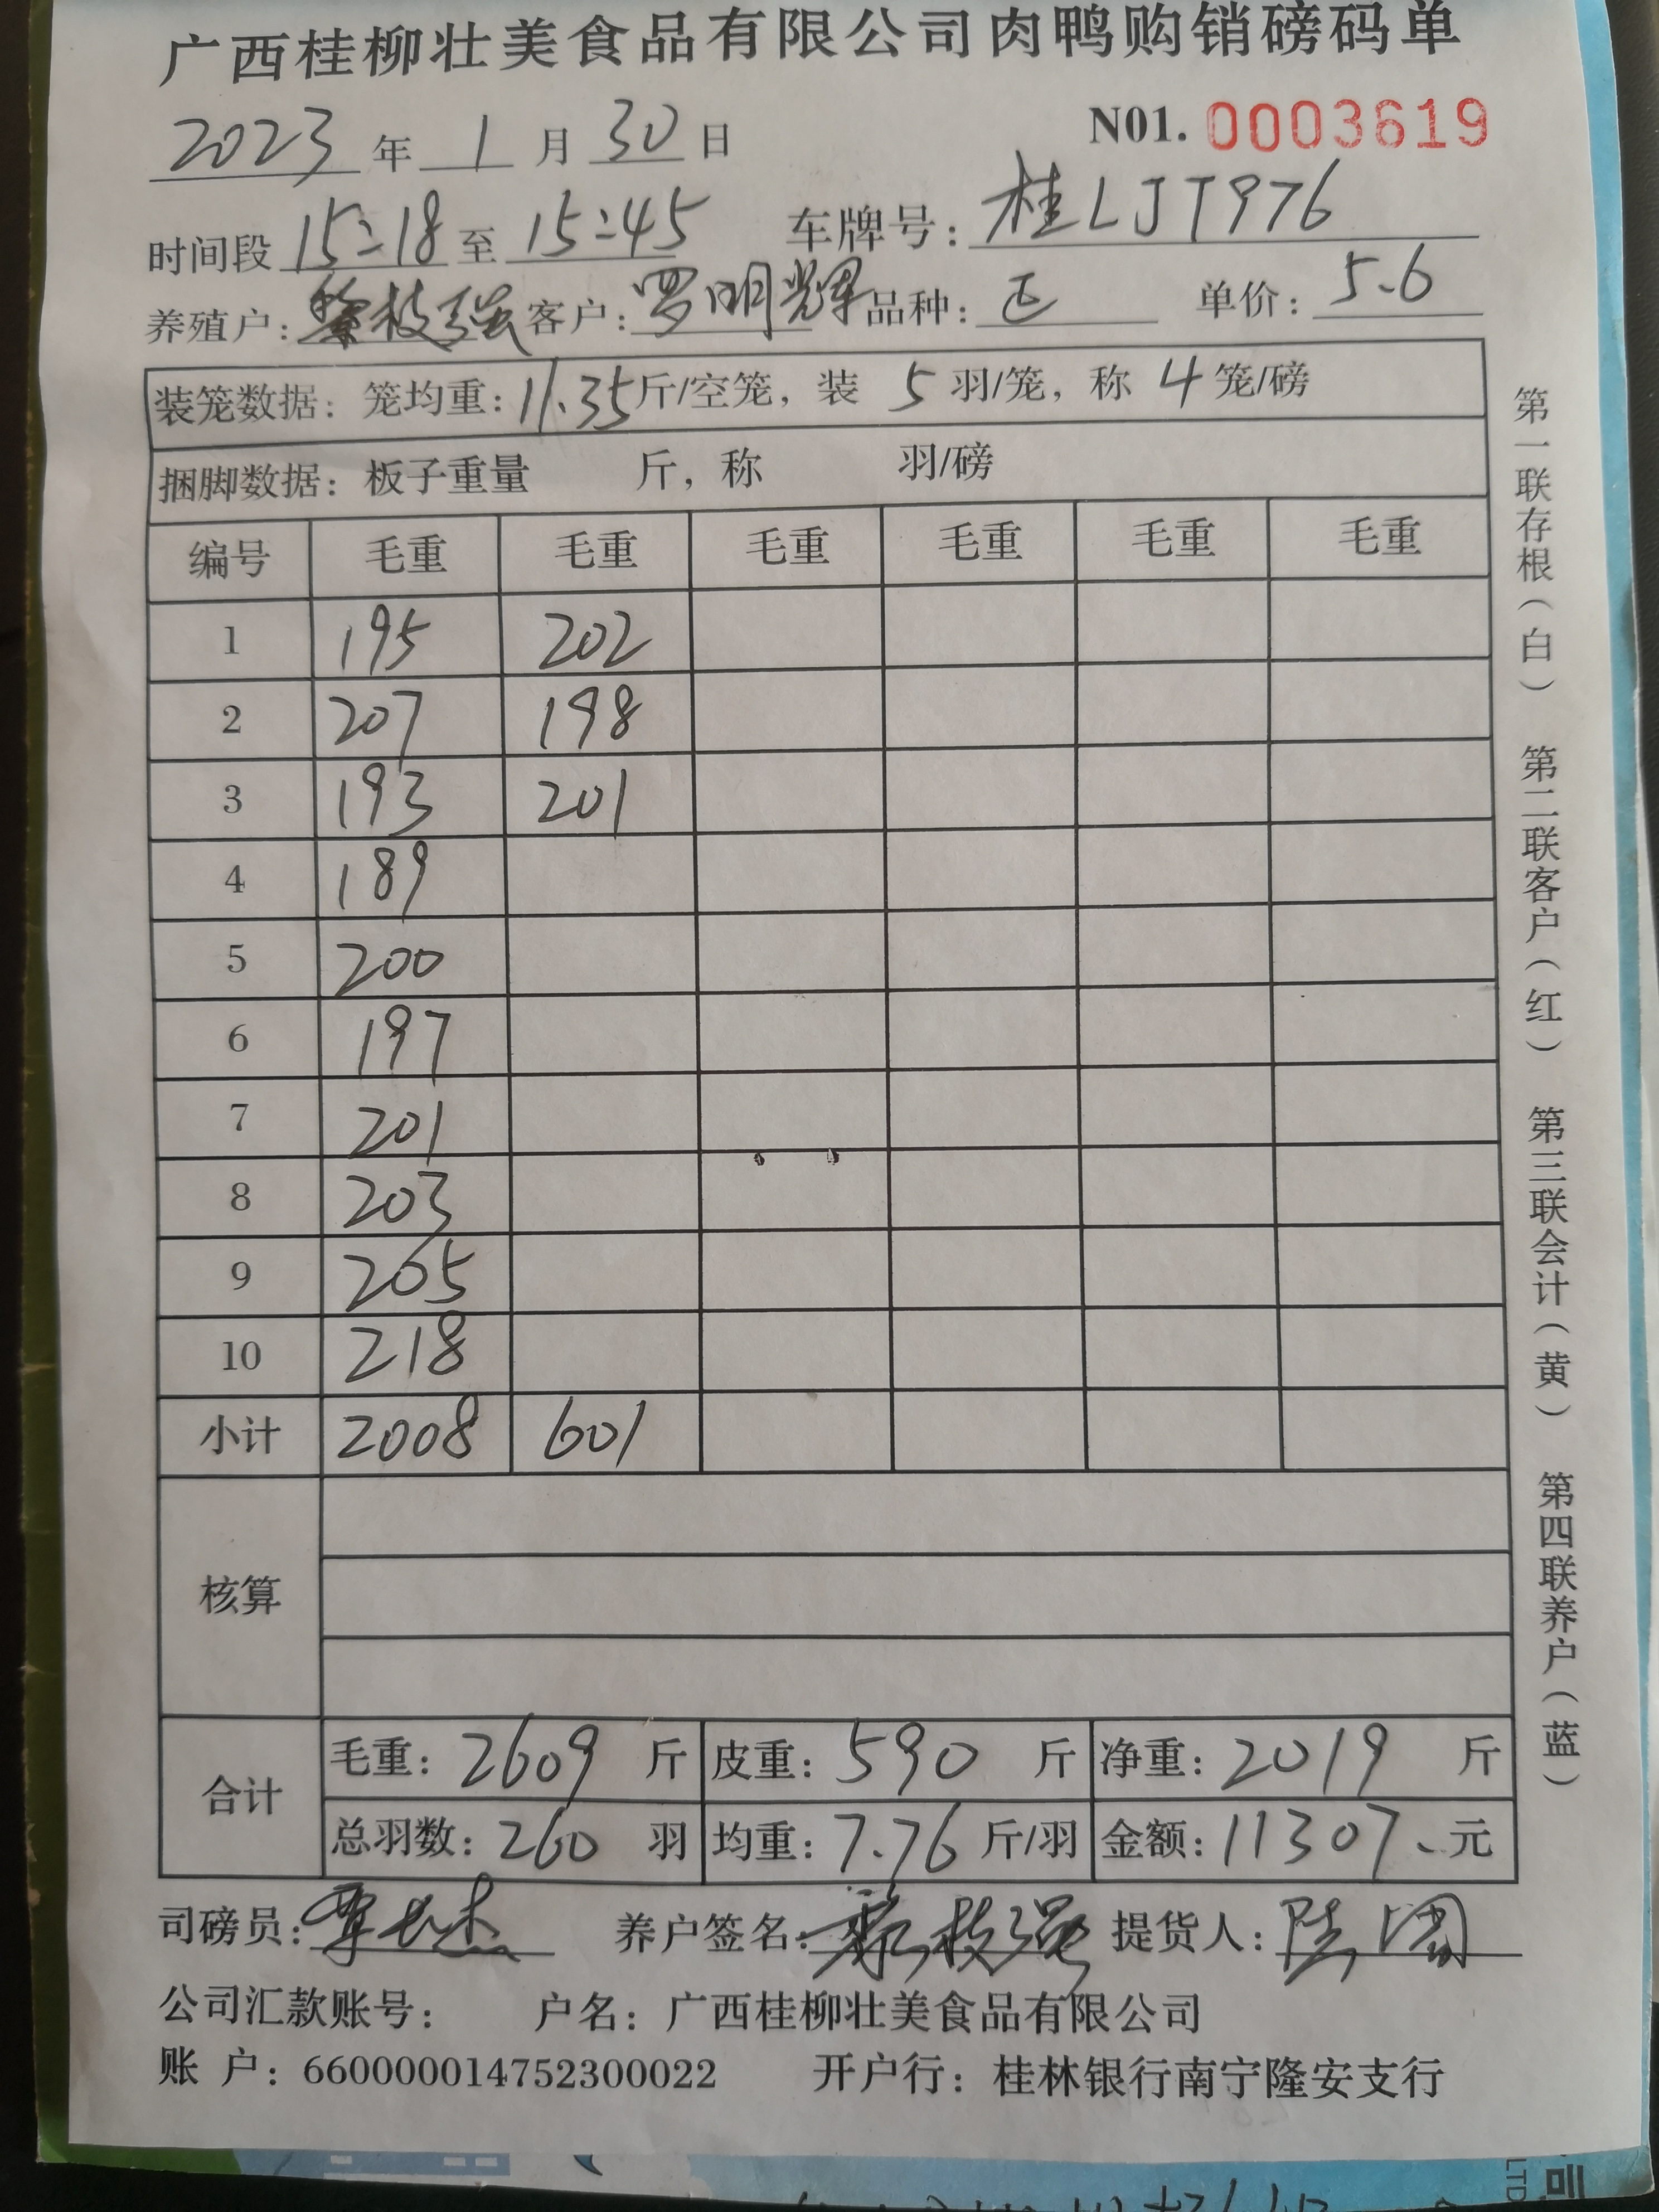 广西桂柳壮美食品有限公司肉鸭购销磅码单
2023 年 1 月 30 日 N01. 0003619
时间段 15:18 至 15:45 车牌号: 桂LJT976
养殖户: 枝强 客户: 罗明辉 品种: 正 单价: 5.6
装笼数据: 笼均重: 11.35 斤/空笼, 装 5 羽/笼, 称 4 笼/磅
捆脚数据: 板子重量 斤, 称 羽/磅
编号 毛重 毛重 毛重 毛重 毛重 毛重
1 195 202
2 207 198
3 193 201
4 189
5 200
6 197
7 201
8 203
9 205
10 218
小计 2008 601
核算
合计 毛重: 2609 斤 皮重: 590 斤 净重: 2019 斤
总羽数: 260 羽 均重: 7.76 斤/羽 金额: 11307、元
司磅员: 养户签名: 枝强 提货人: 陆
公司汇款账号: 户名: 广西桂柳壮美食品有限公司
账 户: 660000014752300022 开户行: 桂林银行南宁隆安支行
第一联存根(白) 第二联客户(红) 第三联会计(黄) 第四联养户(蓝)
LTD